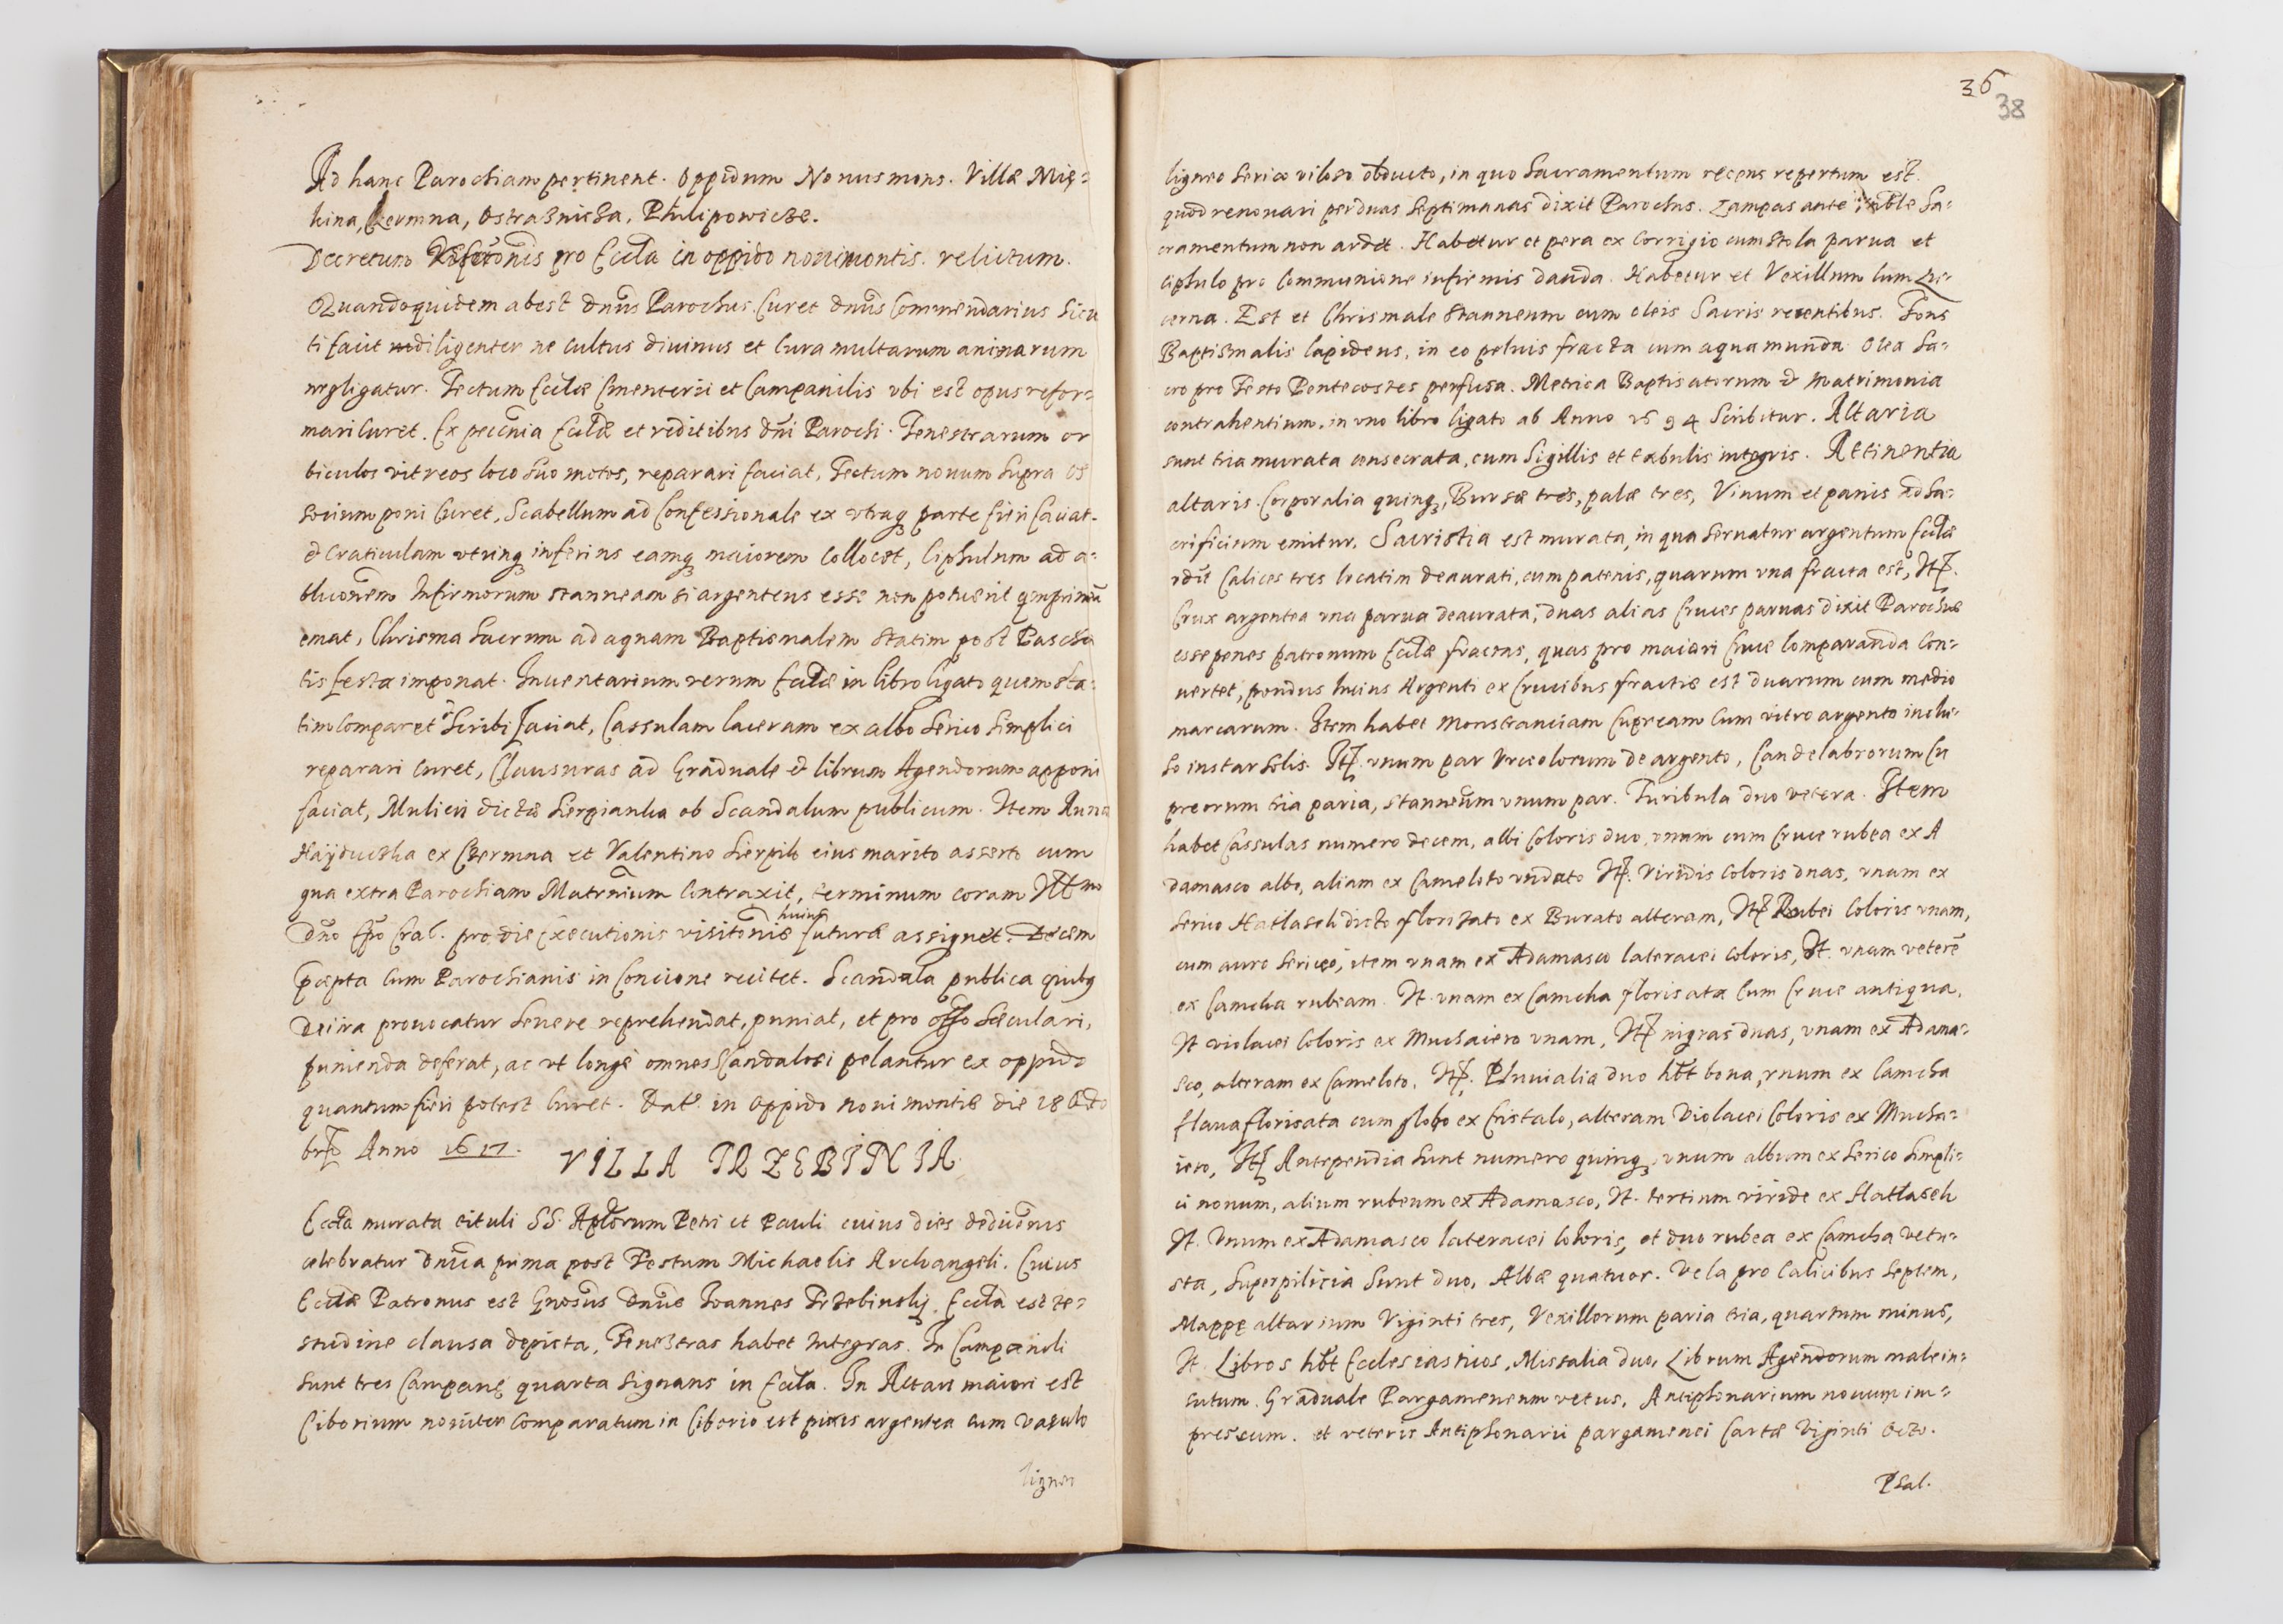 Ad hanc Parochiam pertinent. Oppidum Nouusmons. Villæ Mię-
kina, Czermna, Ostrasznicza, Philipowicze.
Decretum Refor͠onis pro Eccľa in oppido nouimontis relictum.
Quandoquidem abest dn͠us Parochus. Curet dn͠us Commendarius Sicu
ti facit diligenter ne cultus diuinus et Cura multarum animarum
negligatur. Tectum Eccľæ Cmenterii et Campanilis vbi est opus refor-
mari Curet. Ex pecunia Eccľæ et reditibus dn͠i Parochi. Fenestrarum or
biculos vitreos loco suo motos, reparari faciat, Tectum nouum supra os
sorium poni Curet, Scabellum ad Confessionale ex vtraq parte fieri faciat.
& Craticulam vtrinq inferius eamq maiorem Collocet, Ciphulum ad a-
bluo͠nem Infirmorum stanneam si argenteus esse non potuerit
emat, Chrisma Sacrum ad aquam Baptismalem statim post Pascha
tis festa imponat. Inuentarium rerum Eccľæ in libro ligato quem sta-
tim Comparet & Scribi faciat, Cassulam laceram ex albo serico simplici
reparari Curet, Clausuras ad Graduale & librum Agendorum apponi
faciat, Mulieri dictæ Sierpianka ob Scandalum publicum. Item Anna
Hayduczka ex Czermna et Valentino Sierpik eius marito asserto cum
qua extra Parochiam Matrim͠nium Contraxit, terminum coram Ill͠mo
dn͠o Ep͠o Crac. pro die Executionis visito͠nis huius futuræ assignet. Decem
p͠cepta Cum Parochianis in Concione recitet. Scandala publica quibq
Dei ira prouocatur Seuere reprehendat, puniat, et pro off͠o Sæculari,
punienda deferat, ac vt longè omnes Scandalosi pelantur ex oppido
quantum fieri potest Curet. Dat͠. in Oppido Noui montis die 28 Octo
br. Anno 1617.
VILLA TRZEBINIA
Eccľa murata tituli SS. Ap͠lorum Petri et Pauli cuius dies dedica͠nis
celebratur dn͠ica prima post Festum Michaelis Archangeli. Cuius
Eccľæ Patronus est Gnosus Dn͠us Ioannes Trzebinskij. Eccľa est te-
studine clausa depicta, Fenestras habet Integras. In Campanili
sunt tres Campanę quarta Signans in Eccľa. In Altari maiori est
Ciborium nouiter Comparatum in Ciborio est pixis argentea cum vasculo
ligneo
36
38
ligneo Serico viloso obducto, in quo Sacramentum recens repertum est.
quod renouari per duas Septimanas dixit Parochus. Lampas ante Sa-
cramentum non ardet. Habetur et pera ex Corrigio cum stola parua et
ciphulo pro Communione infirmis danda. Habetur et Vexillum Cum Lu-
cerna. Est et Chrismale stanneum cum oleis Sacris recentibus. Fons
Baptismalis lapideus, in eo peluis fracta cum aqua munda Olea Sa-
cro pro Festo Pentecostes perfusa. Metrica Baptisatorum & matrimonia
contrahentium in vno libro ligato ab Anno 1594 Scribitur. Altaria
sunt tria murata consecrata, cum Sigillis et tabulis integris. Attinentia
altaris. Corporalia quinq, Bursæ tres, palæ tres, Vinum et panis ad Sa-
crificium emitur. Sacristia est murata, in qua Seruatur argentum Eccľæ
vdlt Calices tres locatim deaurati, cum patenis, quarum vna fracta est, It.
Crux argentea vna parua deaurata, duas alias Cruces paruas dixit Parochus
esse penes patronum Eccľæ fractas, quas pro maiori Cruce Comparanda Con-
uertet, pondus huius Argenti ex Crucibus fractis est duarum cum medio
marcarum. Item habet Monstranciam Cupream Cum vitro argento inclu-
so instar Solis. It. vnum par Vrceolorum de argento, Candelabrorum Cu
preorum tria paria, stanneum vnum par. Turibula duo vetera. Item
habet Cassulas numero decem, albi Coloris duo, vnam cum Cruce rubea ex A
damasco albo, aliam ex Cameloto vndato It. Viridis Coloris duas, vnam ex
Serico Hatlaseh dicto florisato ex Burato alteram, It Rubei Coloris vnam,
cum auro Sericeo, item vnam ex Adamasco lateracei Coloris, It. vnam veterē
ex Camcha rubeam. It. vnam ex Camcha florisata Cum Cruce antiqua,
It violacei Coloris ex Muchaiero vnam, It nigras duas, vnam ex Adama-
sco, alteram ex Cameloto. It. Pluuialia duo hb͠t bona, vnum ex Camcha
flaua florisata cum globo ex Cristalo, alteram Violacei Coloris ex Mucha-
iero, It Antependia sunt numero quinq, vnum album ex Serico Simpli-
ci nouum, alium rubeum ex Adamasco, It. tertium viride ex Hatlaseh
It. Vnum ex Adamasco lateracei Coloris, et duo rubea ex Camcha vetu-
sta, Superpilicia Sunt duo, Albæ quatuor. Vela pro Calicibus Septem,
Mappę altarium Viginti tres, Vexillorum paria tria, quartum minus,
It. Libros hb͠t Ecclesiasticos, Missalia duo, Librum Agendorum male in-
sutum. Graduale Pargameneum vetus, Antiphonarium nouum im-
pressum. et veteris Antiphonarii pargamenei Cartæ Viginti Octo.
Psal.